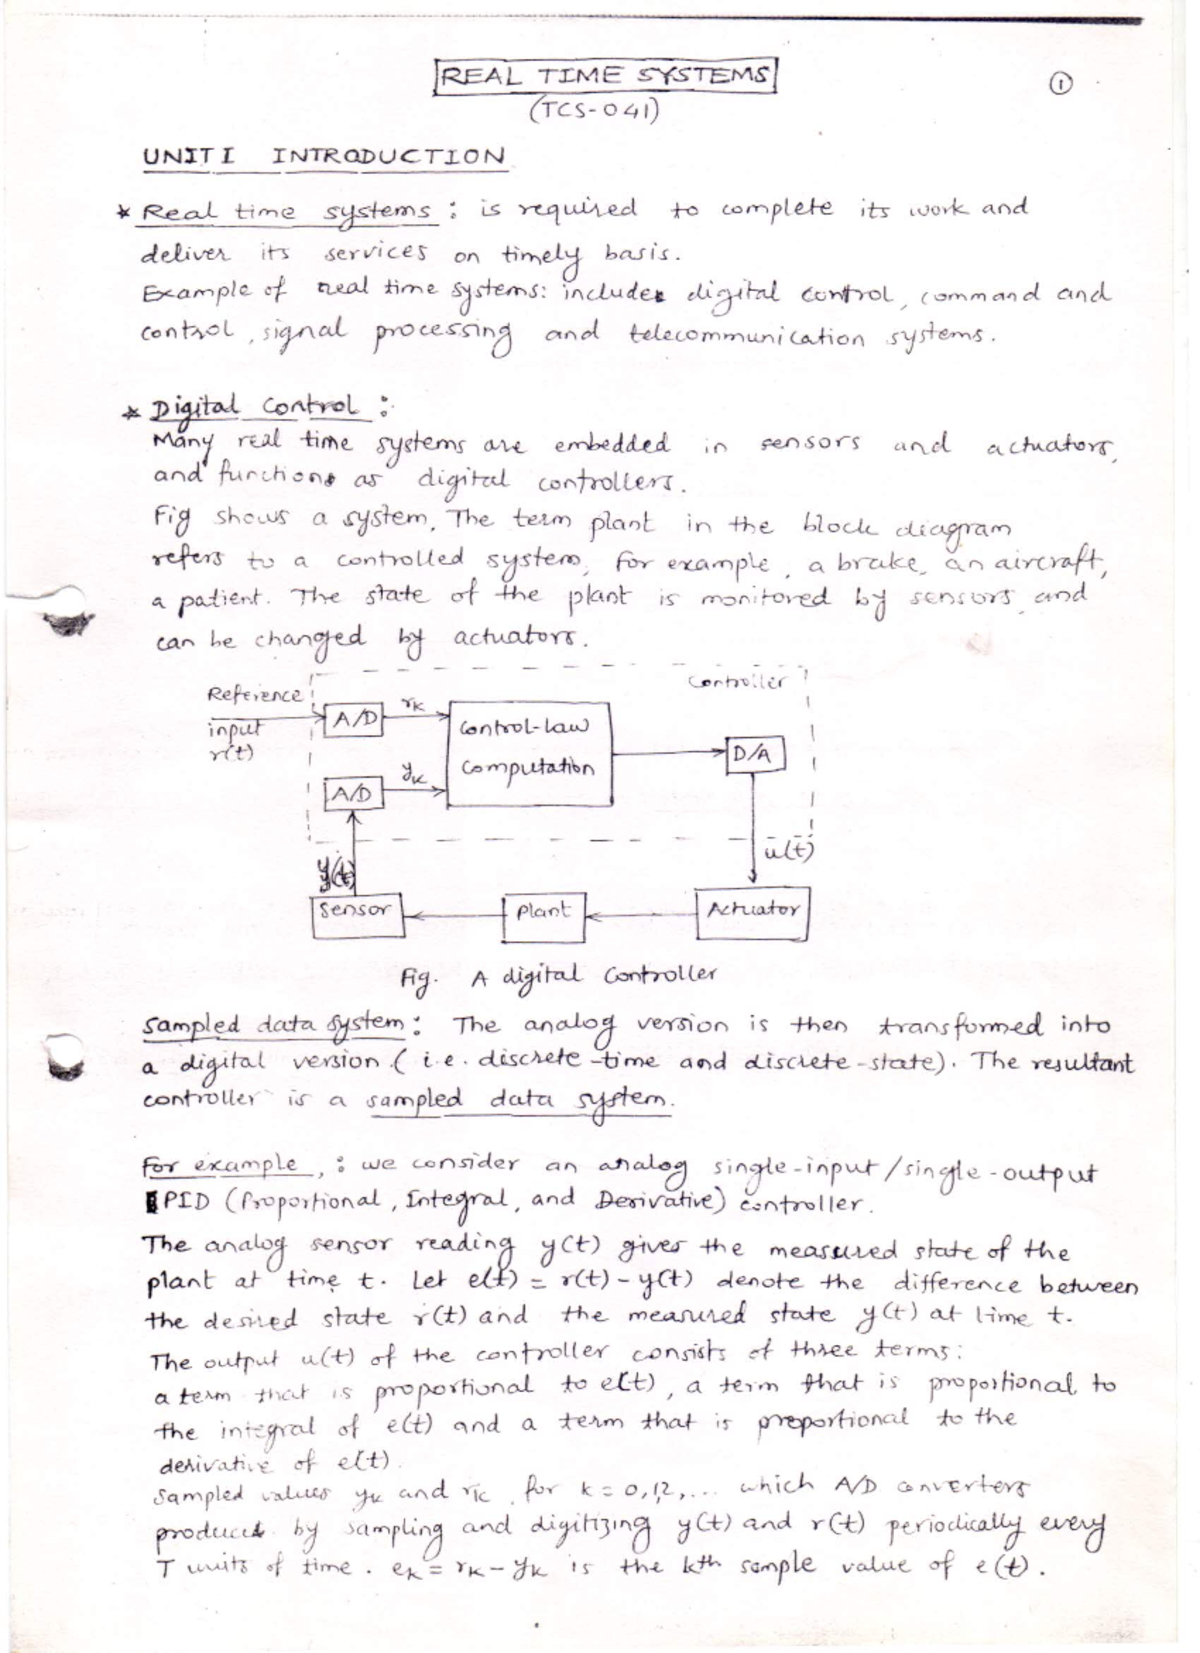 REAL TIME SYSTEMS
1
(TCS-041)
UNIT I INTRODUCTION
* Real time systems : is required to complete its work and
deliver its services on timely basis.
Example of real time systems: include digital control, command and
control, signal processing and telecommunication systems.
* Digital Control :
Many real time systems are embedded in sensors and actuators,
and functions as digital controllers.
Fig shows a system. The term plant in the block diagram
refers to a controlled system, for example, a brake, an aircraft,
a patient. The state of the plant is monitored by sensors and
can be changed by actuators.
Controller
Reference
input
r(t)
A/D
rK
Control-law
computation
D/A
A/D
yK
y(t)
u(t)
Sensor
Plant
Actuator
Fig. A digital Controller
Sampled data system: The analog version is then transformed into
a digital version ( i.e. discrete-time and discrete-state). The resultant
controller is a sampled data system.
For example, : we consider an analog single-input/single-output
PID (Proportional, Integral, and Derivative) controller.
The analog sensor reading y(t) gives the measured state of the
plant at time t. Let e(t) = r(t) - y(t) denote the difference between
the desired state r(t) and the measured state y(t) at time t.
The output u(t) of the controller consists of three terms:
a term that is proportional to e(t), a term that is proportional to
the integral of e(t) and a term that is proportional to the
derivative of e(t).
Sampled values yk and rk, for k = 0,1,2,... which A/D converters
produces by sampling and digitizing y(t) and r(t) periodically every
T units of time. eK = rK - yK is the kth sample value of e(t).